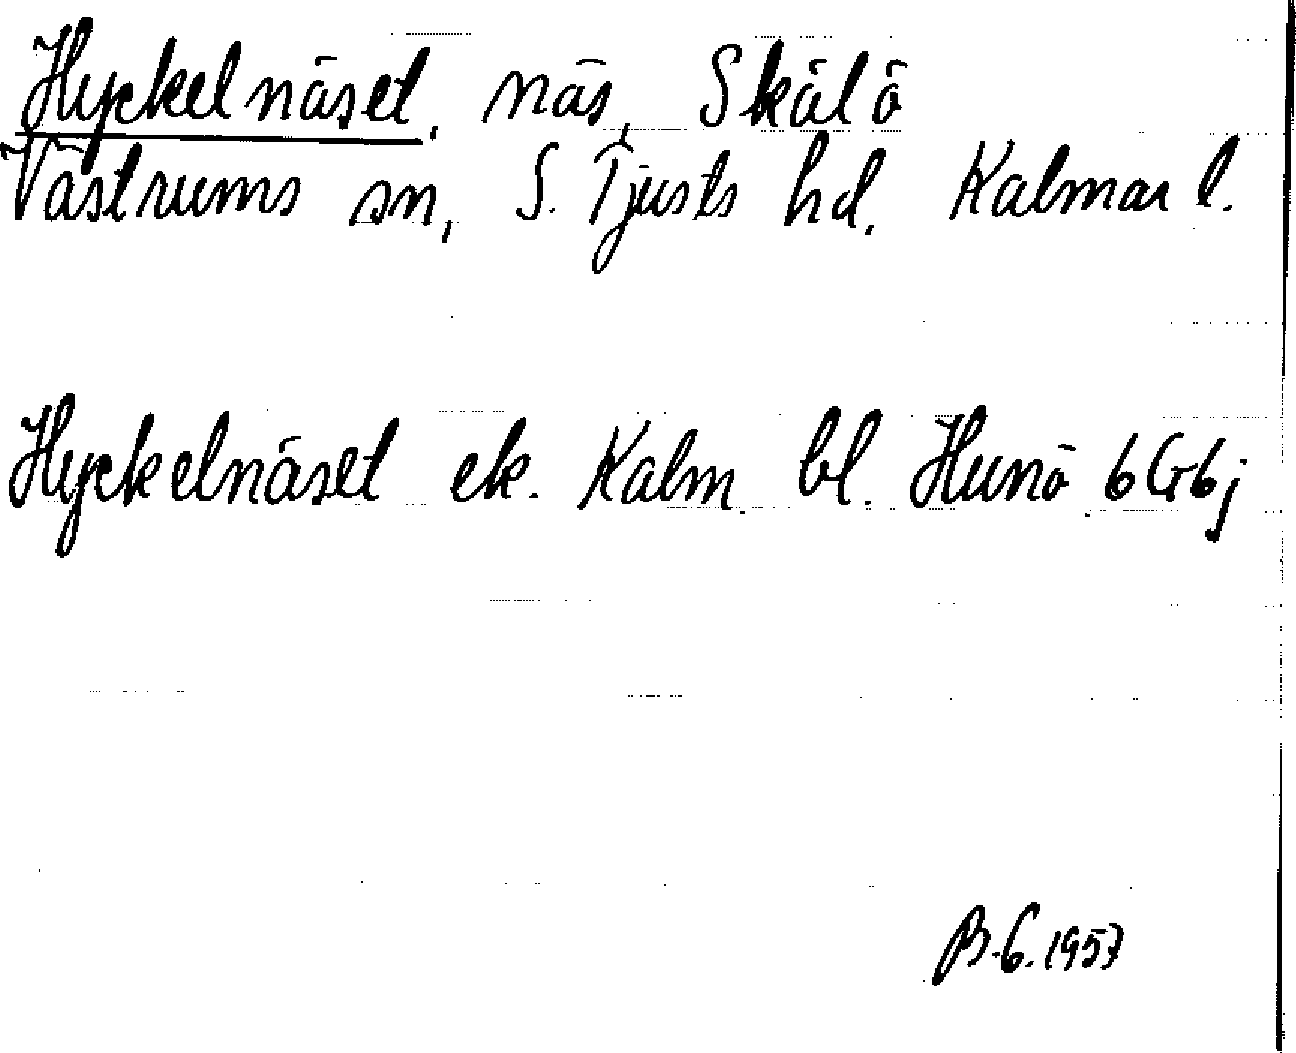 Hyckelnäset, näs, Skälö
Västrums sn, S. Tjusts hd. Kalmar l.
Hyckelnäset ek. Kalm. bl. Hunö 6G6j
B.G. 1957